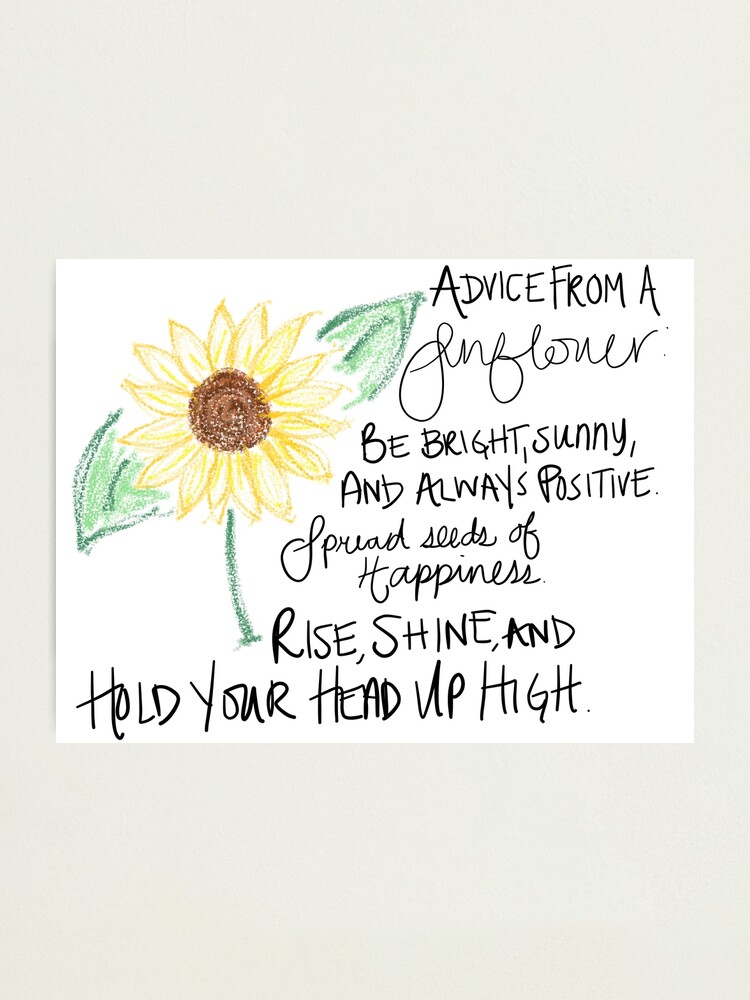 ADVICE FROM A
Sunflower:
BE BRIGHT, SUNNY,
AND ALWAYS POSITIVE.
Spread seeds of
Happiness.
RISE, SHINE, AND
HOLD YOUR HEAD UP HIGH.